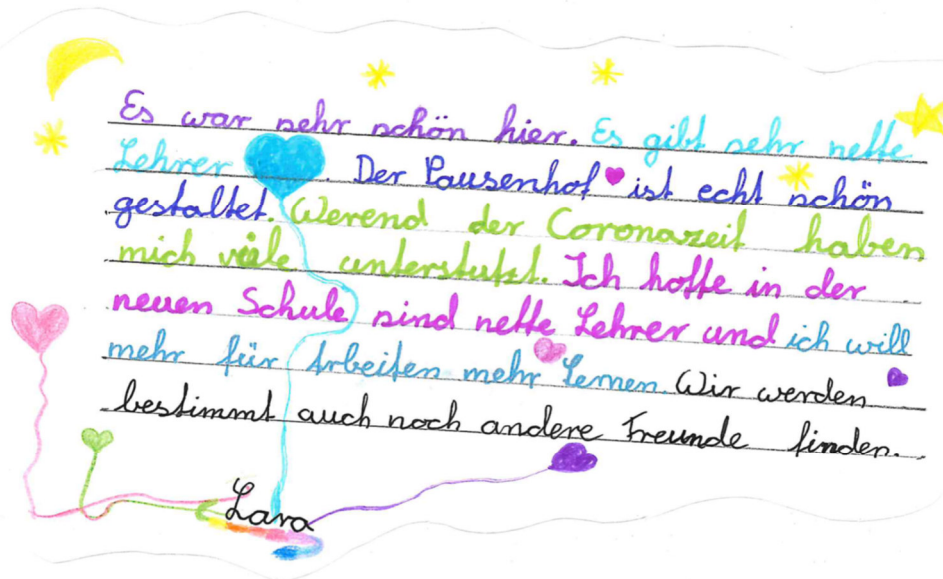 Es war sehr schön hier. Es gibt sehr nette
Lehrer. Der Pausenhof ist echt schön
gestaltet. Werend der Coronazeit haben
mich viele unterstutzt. Ich hoffe in der
neuen Schule sind nette Lehrer und ich will
mehr für Arbeiten mehr Lernen. Wir werden
bestimmt auch noch andere Freunde finden.
Lara